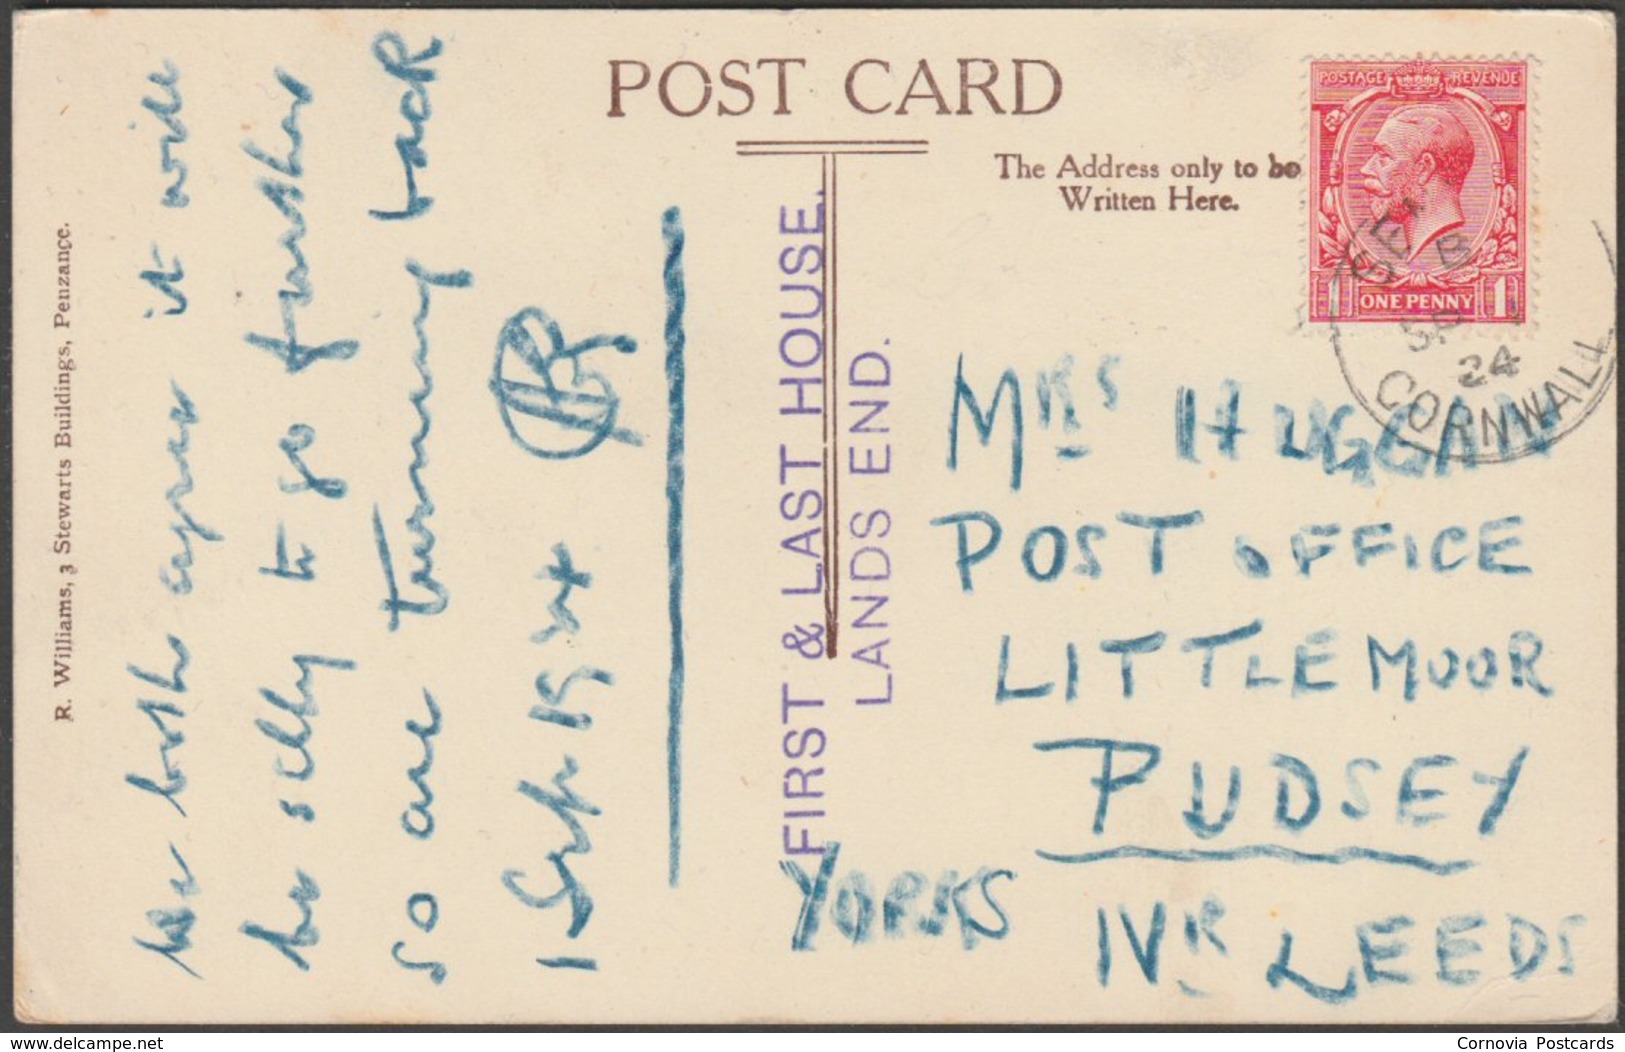 POST CARD
The Address only to be
Written Here.
POSTAGE REVENUE
ONE PENNY 1
SEN
B
SP 1
24
CORNWALL
R. Williams, 3 Stewarts Buildings, Penzance.
We both agree it will
be silly to go further
so are turning back
1 Sep 1924
FIRST & LAST HOUSE.
LANDS END.
MRS HUGGAN
POST OFFICE
LITTLEMOOR
PUDSEY
NR LEEDS
YORKS
Cornovia Postcards
www.delcampe.net